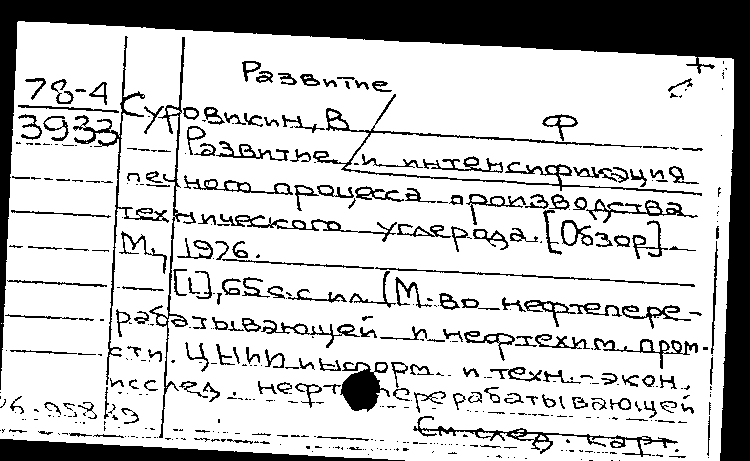 Развитие
78-4
3933
Суровикин, В Ф
Развитие и интенсификация
печного процесса производства
технического углерода. [Обзор].
М., 1976.
[1], 65 с. с ил (М-во нефтепере-
рабатывающей и нефтехим. пром-
сти. ЦНИИ информ. и техн.-экон.
исслед. нефтеперерабатывающей
См. след. карт.